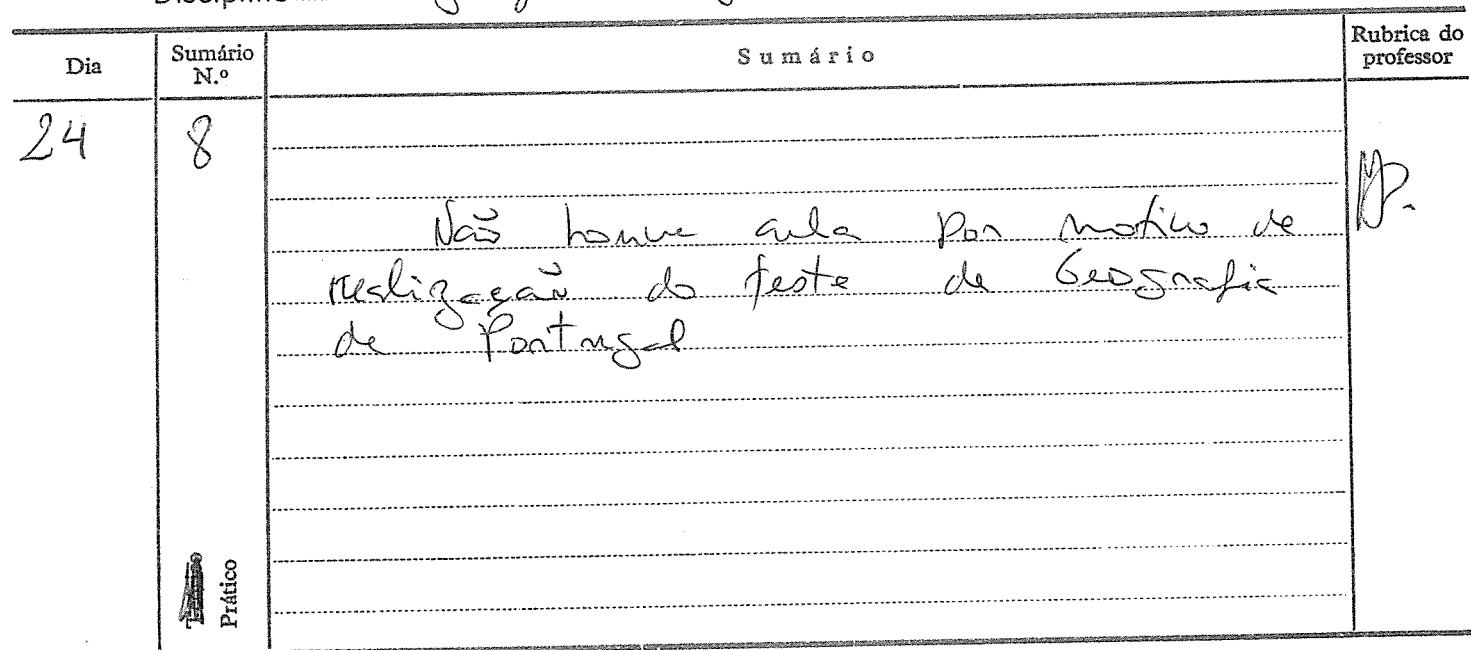 Dia
Sumário N.º
Sumário
Rubrica do professor
24
8
Não houve aula por motivo de
realização do teste de Geografia
de Portugal
Prático